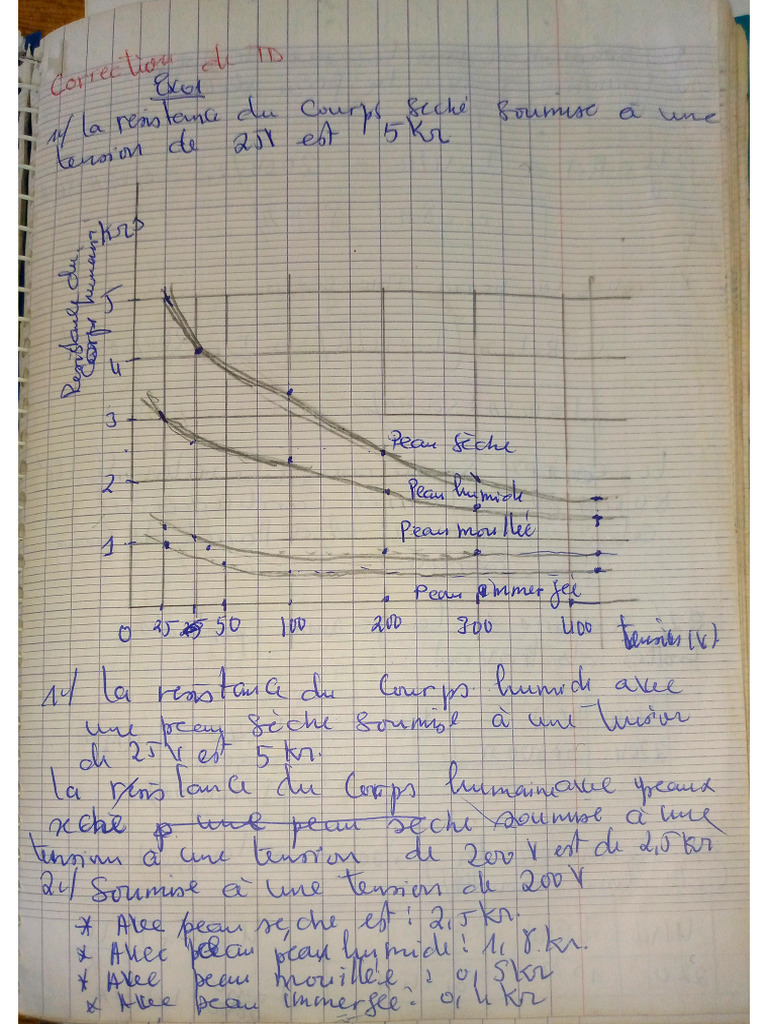 Correction de TD
Exo1
1°/ La resistance du Courps séché soumise à une
tension de 25V est 5 Kr
Resistance du
Corps humain
KΩ
5
4
3
2
1
Peau sèche
Peau humide
Peau mouillée
Peau immergée
0 25 50 100 200 300 400 tension (V)
1°/ La resistance du Courps humide avec
une peau sèche soumise à une tension
de 25V est 5 Kr.
La resistance du Corps humaine avec peaux
sèche p une peau sèche soumise à une
tension à une tension de 200 V est de 2,5 Kr
2°/ Soumise à une tension de 200V
* Avec peau sèche est : 2,5 Kr.
* Avec peau peau humide : 1,8 Kr.
* Avec peau mouillée : 0,5 Kr
* Avec peau immergée : 0,4 Kr